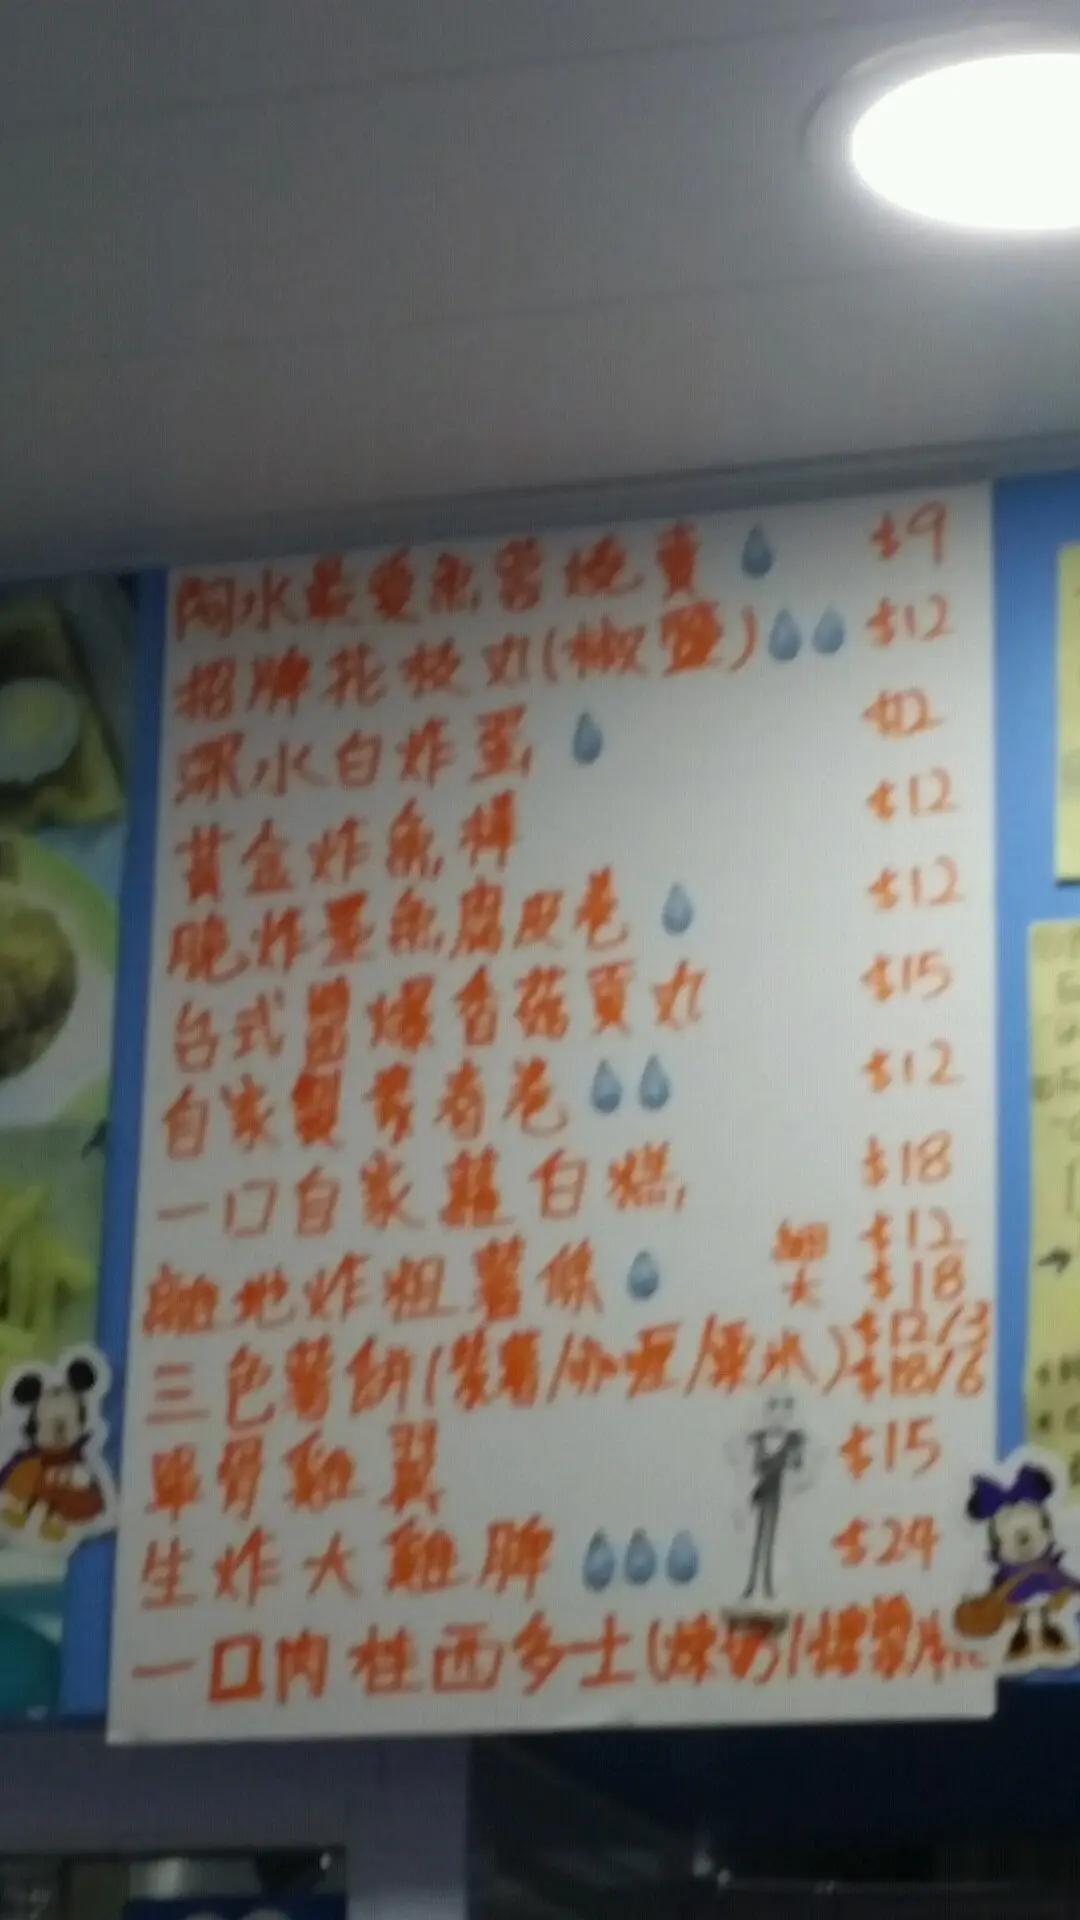 水最愛魚 燒賣 $9
招牌花枝丸(椒鹽) $12
深水白炸蛋 $12
黃金炸魚棒 $12
脆炸墨魚腐皮卷 $12
台式 爆香菇貢丸 $15
自家製 春卷 $12
一口自家蘿白糕 $18
地炸粗薯條 細 $12
大 $18
三色薯餅( 薯/ / ) $12/3
$18/6
單骨雞翼 $15
生炸大雞脾 $24
一口肉桂西多士(煉奶/